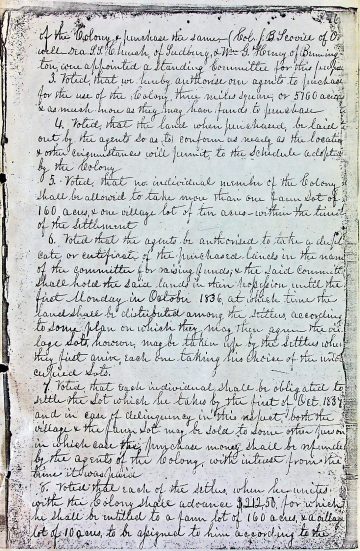 of the Colony & purchase the same (Col. J B Scovill of Or
well Dea. S. Church, of Sudbury, & Wm G Henry of Benning
ton, were appointed a Standing Committee for this purpose
3. Voted, that we hereby authorise our agents to purchase
for the use of the Colony, three miles square, or 5760 acres
& as much more as they may have funds to purchase
4. Voted, that the land when purchased, be laid
out by the agents so as to conform as nearly as the location
& other circumstances will permit, to the schedule adopted
by the Colony
5. Voted, that no individual member of the Colony
shall be allowed to take more than one farm lot of
160 acres, & one village lot of ten acres within the limits
of the settlement
6. Voted that the agents be authorised to take a dupli
cate or certificate of the purchased lands in the name
of the committee for raising funds; & the said Committee
shall hold the said lands in their possession until the
first Monday in October 1836, at which time the
land shall be distributed among the settlers, according
to some plan on which they may then agree the vil
lage lots, however, may be taken up by the settlers when
they first arrive each one taking his choice of the unoc
cupied lots.
7. Voted that each individual shall be obligated to
settle the lot which he takes by the first of Oct 1837
and in case of delinquency in this respect, both the
village & the farm lot may be sold to some other person
in which case the purchase money shall be refunded
by the agents of the Colony, with interest from the
time it was paid
8. Voted that each of the settlers, when he unites
with the Colony shall advance $212.50, for which
he shall be entitled to a farm lot of 160 acres, & a village
lot of 10 acres, to be assigned to him according to the